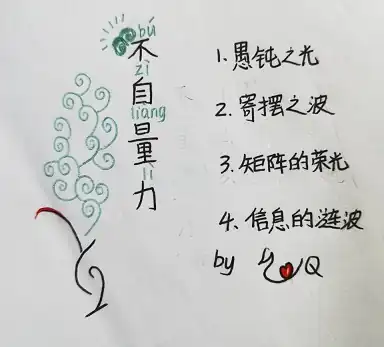 bú
不
zì
自
liàng
量
lì
力
1. 愚钝之光
2. 寄摆之波
3. 矩阵的荣光
4、信息的涟波
by Q